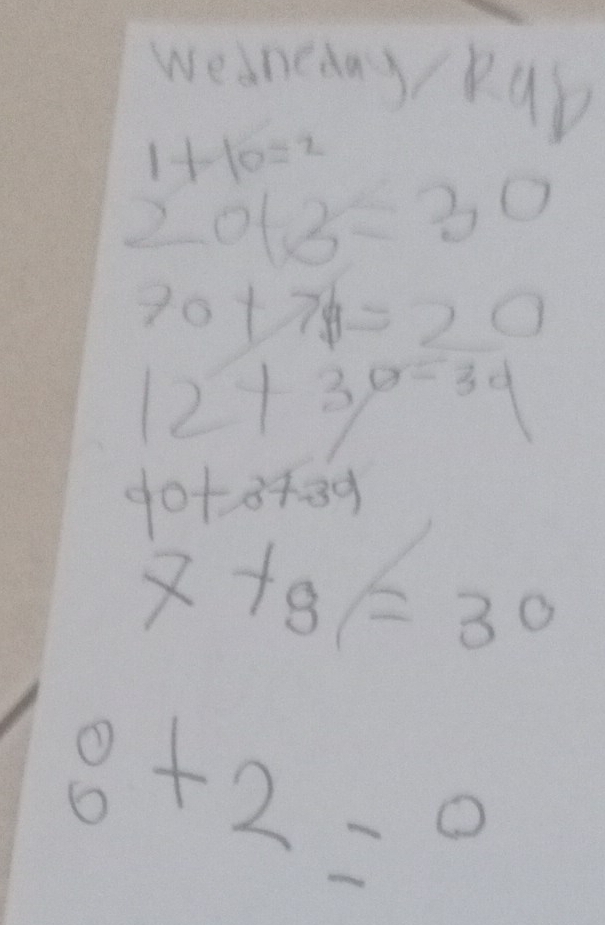 Wedneday/
1+10=2
20+3=30
70+71=20
12+30=39
90+3+39
7+8=30
8+2=0